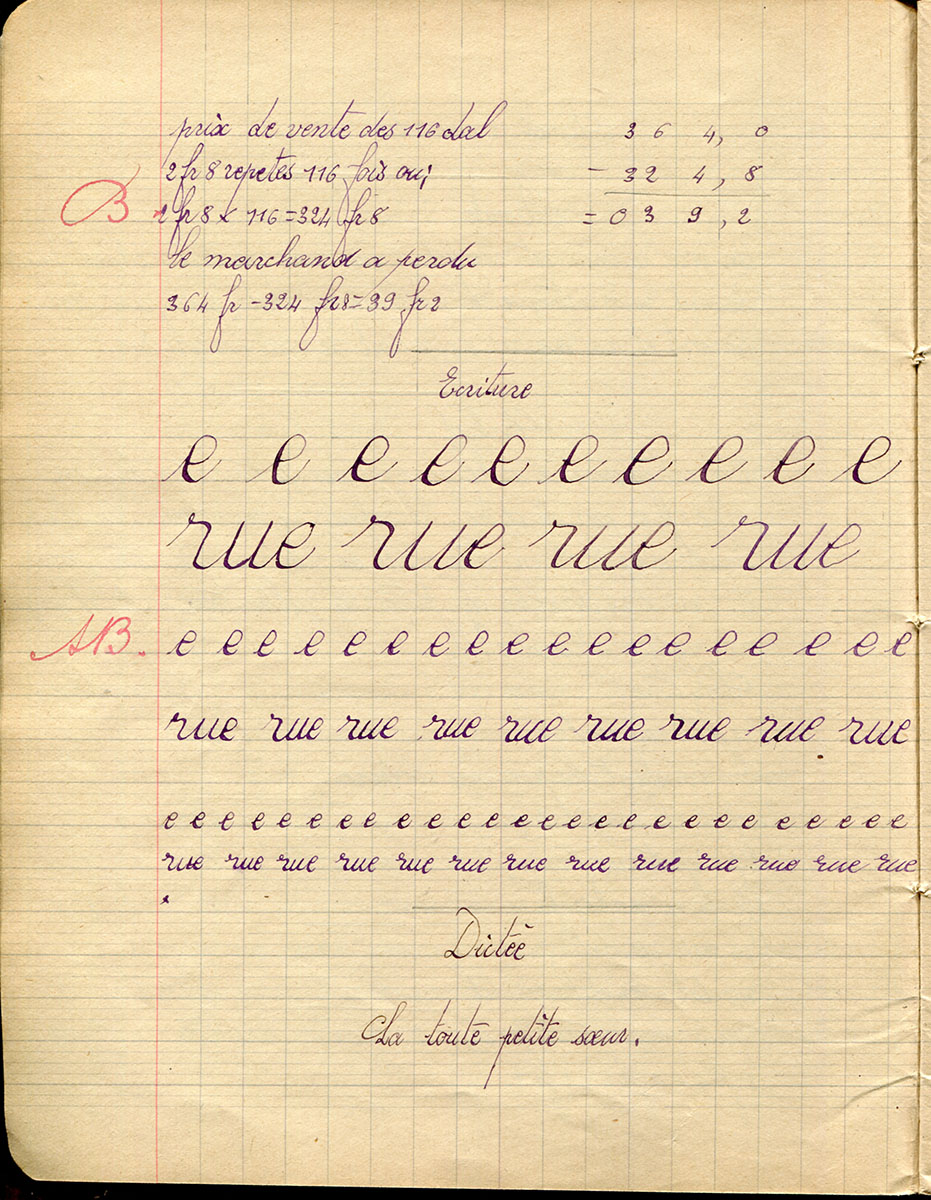 prix de vente des 116 dal
2 fr 8 repetes 116 fois ou;
2 fr 8 × 116 = 324 fr 8
le marchand a perdu
364 fr - 324 fr 8 = 39 fr 2
3 6 4, 0
- 32 4, 8
= 0 3 9, 2
B
Ecriture
e e e e e e e e e
rue rue rue rue
AB.
e e e e e e e e e e e e e e e e e e
rue rue rue rue rue rue rue rue rue
e e e e e e e e e e e e e e e e e e e e e e e e e e
rue rue rue rue rue rue rue rue rue rue rue rue rue
Dictée
La toute petite sœur.